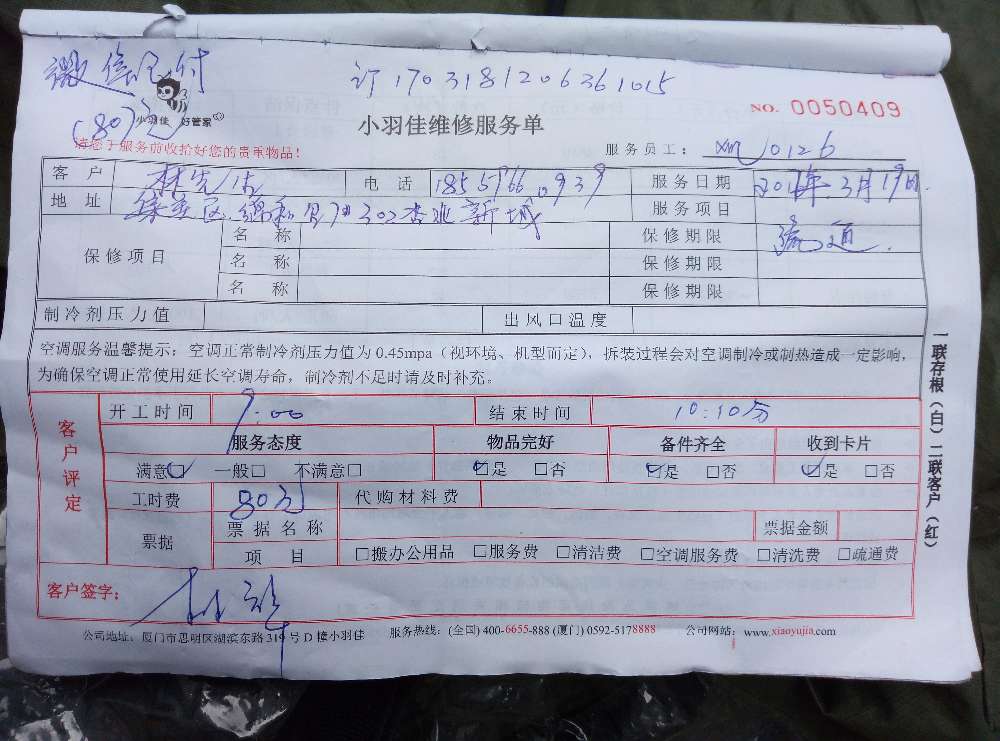 微信支付
(80)元
订1703181206361015
小羽佳 好管家
NO. 0050409
小羽佳维修服务单
请您于服务前收拾好您的贵重物品！
服务员工： 0126
客户 林先生 电话 18557660939 服务日期 2017年3月19日
地址 302杏北新城 服务项目 疏通
保修项目 名称 保修期限
名称 保修期限
名称 保修期限
制冷剂压力值 出风口温度
空调服务温馨提示：空调正常制冷剂压力值为0.45mpa（视环境、机型而定），拆装过程会对空调制冷或制热造成一定影响，
为确保空调正常使用延长空调寿命，制冷剂不足时请及时补充。
一联存根（白）二联客户（红）
客户评定
开工时间 9:00 结束时间 10:10分
服务态度 物品完好 备件齐全 收到卡片
满意☑ 一般□ 不满意□ ☑是 □否 ☑是 □否 ☑是 □否
工时费 80元 代购材料费
票据 票据名称 票据金额
项目 □搬办公用品 □服务费 □清洁费 □空调服务费 □清洗费 □疏通费
客户签字：
公司地址：厦门市思明区湖滨东路319号D幢小羽佳 服务热线：(全国) 400-6655-888 (厦门) 0592-5178888 公司网站：www.xiaoyujia.com